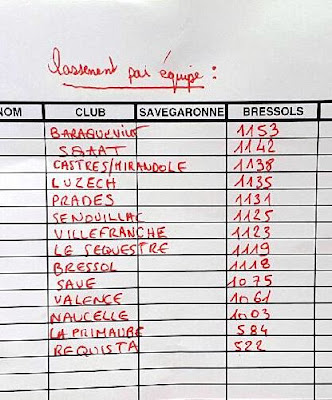 classement par équipe :
NOM CLUB SAVEGARONNE BRESSOLS
BARAQUEVILLE 1153
SQAAT 1142
CASTRES/MIRANDOLE 1138
LUZECH 1135
PRADES 1131
SENOUILLAC 1125
VILLEFRANCHE 1123
LE SEQUESTRE 1119
BRESSOL 1118
SAVE 1075
VALENCE 1061
NAUCELLE 1003
LA PRIMAUBE 584
REQUISTA 522